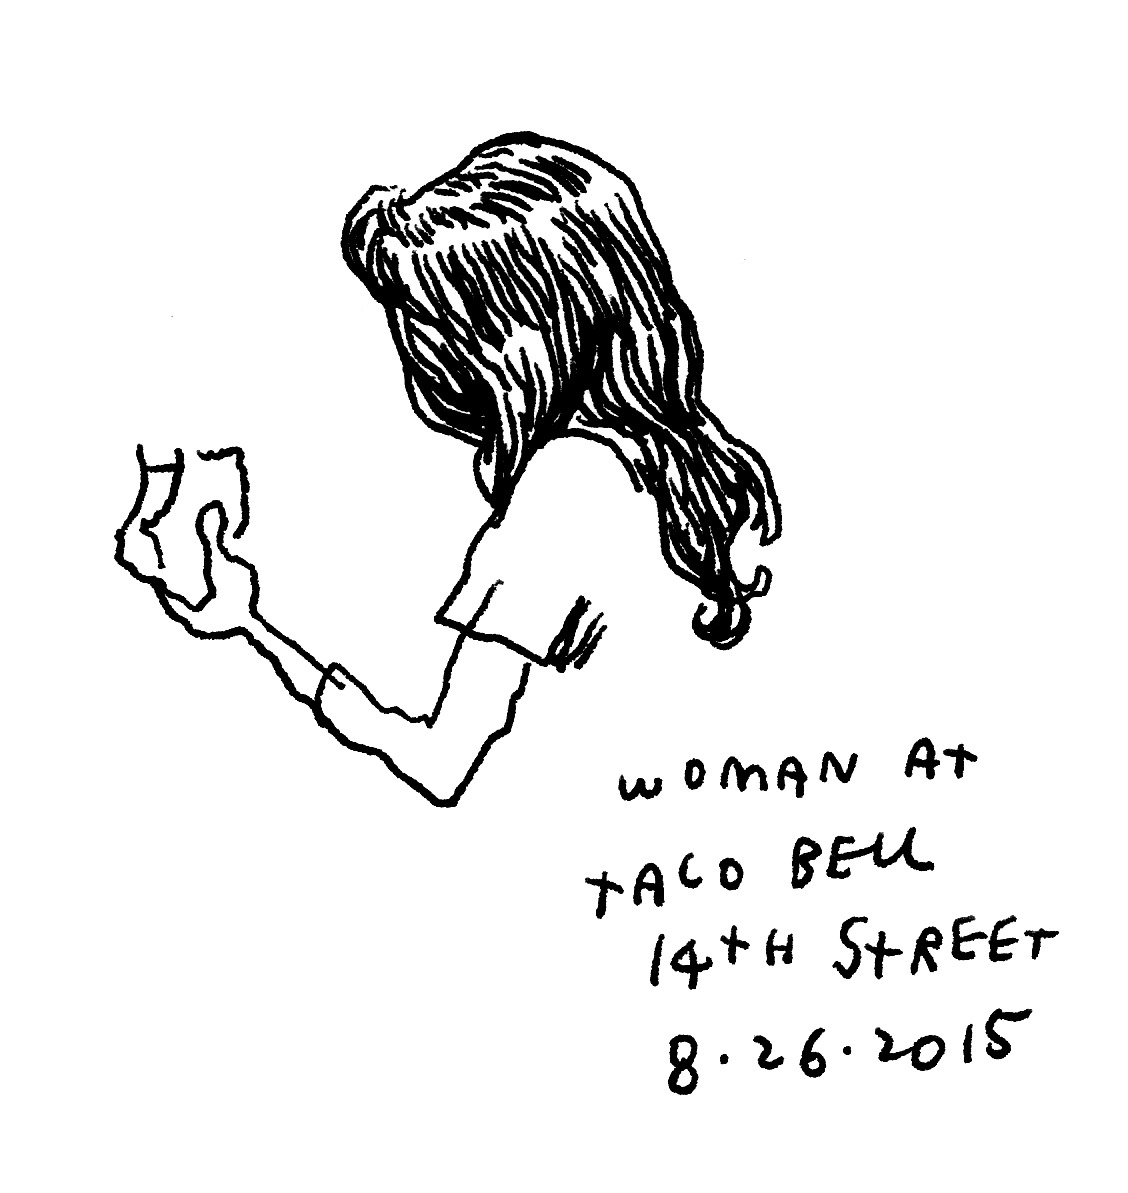 WOMAN AT
TACO BELL
14TH STREET
8.26.2015